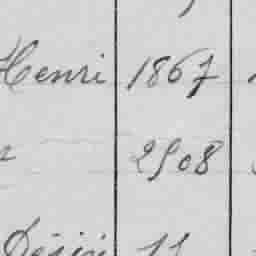 Henri 1867
2908
Désiré 11